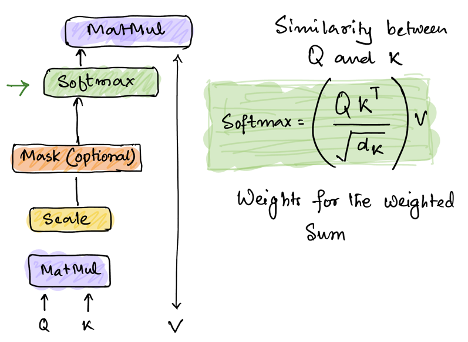 MatMul
Softmax
Mask (optional)
Scale
MatMul
Q K V
Similarity between
Q and K
Softmax = (QK^T / √dK) V
Weights for the weighted
Sum